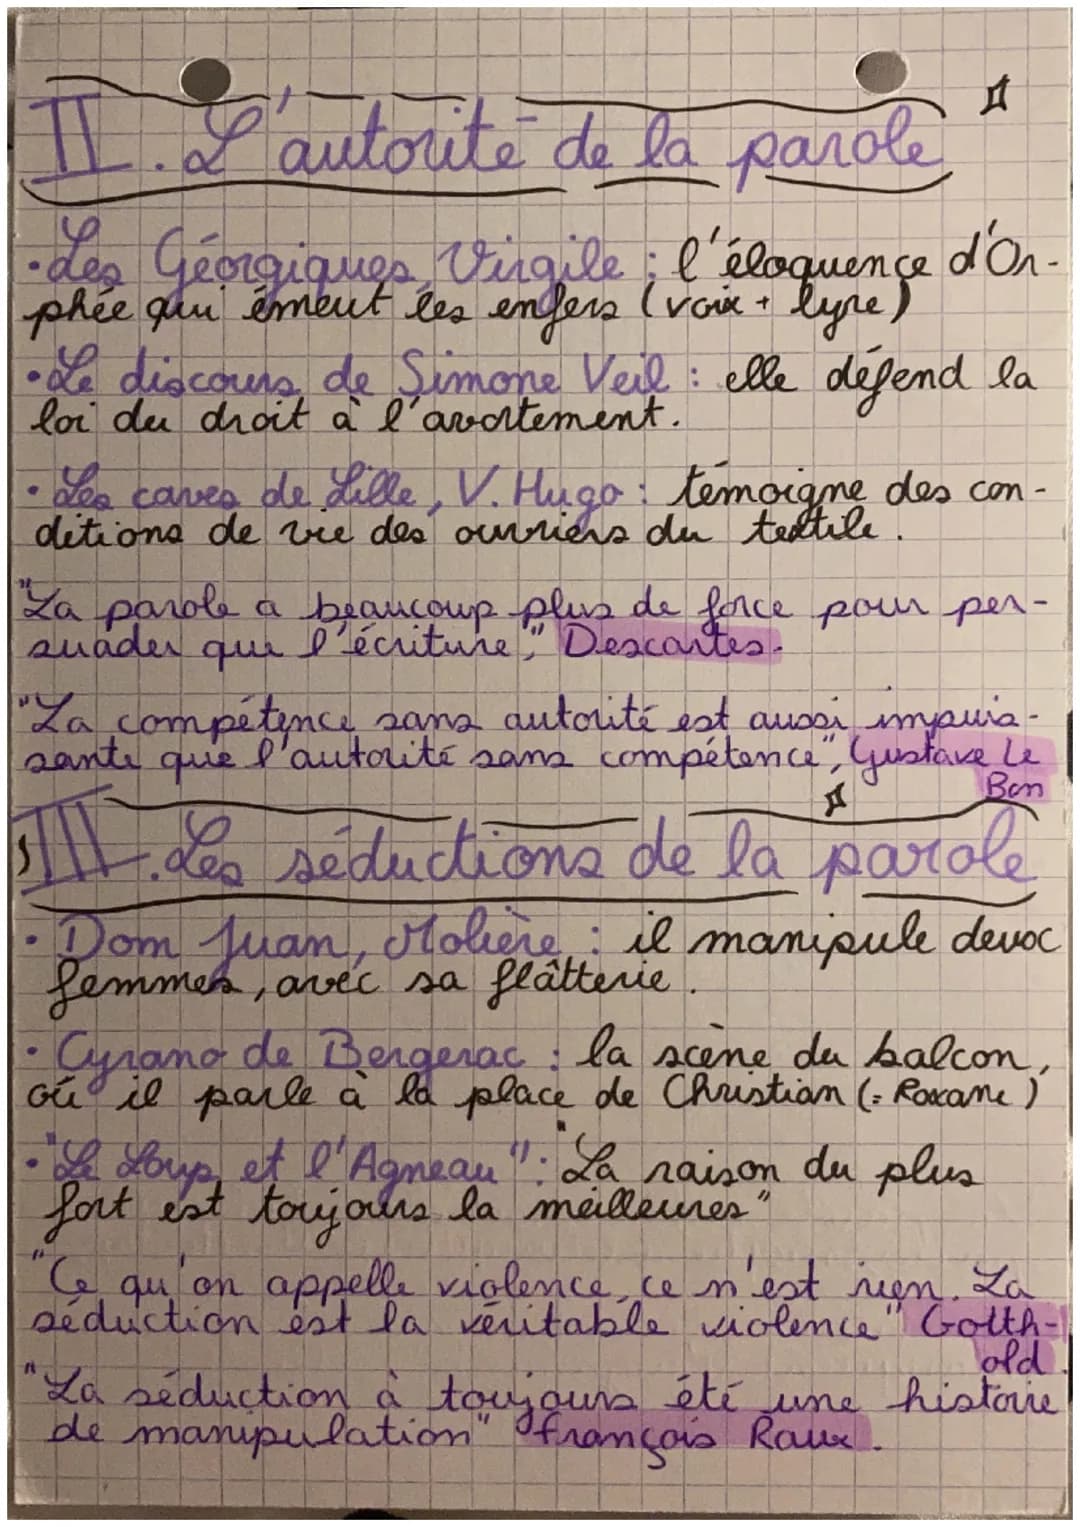 II. L'autorité de la parole
• Les Géorgiques, Virgile : l'éloquence d'Or-
phée qui émeut les enfers (voix + lyre)
• Le discours de Simone Veil : elle défend la
loi du droit à l'avortement.
• Les caves de Lille, V. Hugo : témoigne des con-
ditions de vie des ouvriers du textile.
"La parole a beaucoup plus de force pour per-
suader que l'écriture", Descartes.
"La compétence sans autorité est aussi impuis-
sante que l'autorité sans compétence", Gustave Le
Bon
III. Les séductions de la parole
• Dom Juan, Molière : il manipule deux
femmes, avec sa flâtterie.
• Cyrano de Bergerac : la scène du balcon,
où il parle à la place de Christian (= Roxane)
• "Le Loup et l'Agneau" : "La raison du plus
fort est toujours la meilleures"
"Ce qu'on appelle violence, ce n'est rien. La
séduction est la véritable violence" Gotth-
old.
"La séduction à toujours été une histoire
de manipulation" françois Raux.